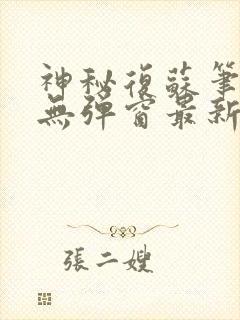 神秘復蘇筆
無彈窗最新
張二嫂